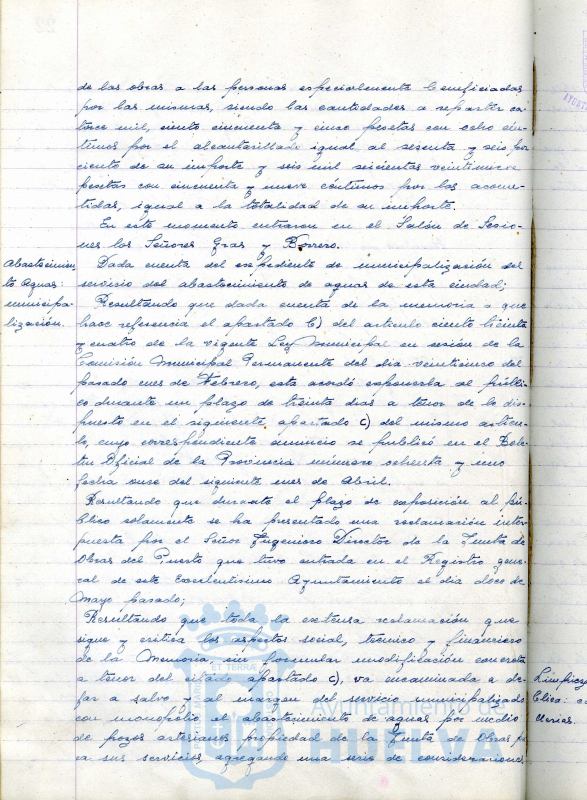 de las obras a las personas especialmente beneficiadas
por las mismas, siendo las cantidades a repartir ca-
torce mil, ciento cincuenta y cinco pesetas con ocho cén-
timos por el alcantarillado igual al sesenta y seis por
ciento de su importe y seis mil seiscientas veintinueve
pesetas con cincuenta y nueve céntimos por las acome-
tidas, igual a la totalidad de su importe.
En este momento entraron en el Salón de Sesio-
nes los Señores Gras y Borrero.
Abastecimien-
to Aguas:
municipa-
lización.
Dada cuenta del expediente de municipalización del
servicio del abastecimiento de aguas de esta ciudad;
Resultando que dada cuenta de la memoria a que
hace referencia el apartado b) del artículo ciento treinta
y cuatro de la vigente Ley Municipal en sesión de la
Comisión Municipal Permanente del día veinticinco del
pasado mes de Febrero, esta acordó exponerla al públi-
co durante un plazo de treinta días a tenor de lo dis-
puesto en el siguiente apartado c) del mismo artícu-
lo, cuyo correspondiente anuncio se publicó en el Bole-
tín Oficial de la Provincia número ochenta y uno
fecha once del siguiente mes de Abril.
Resultando que durante el plazo de exposición al pú-
blico solamente se ha presentado una reclamación inter-
puesta por el Señor Ingeniero Director de la Junta de
Obras del Puerto que tuvo entrada en el Registro gene-
ral de este Excelentísimo Ayuntamiento el día doce de
Mayo pasado;
Resultando que toda la extensa reclamación que
sigue y critica los aspectos social, técnico y financiero
de la Memoria, sin formular modificación concreta
a tenor del citado apartado c), va encaminada a de-
jar a salvo y al margen del servicio municipalizado
con monopolio el abastecimiento de aguas por medio
de pozos artesianos propiedad de la Junta de Obras pa
ra sus servicios, agregando una serie de consideraciones
Ayuntamiento de
HUELVA